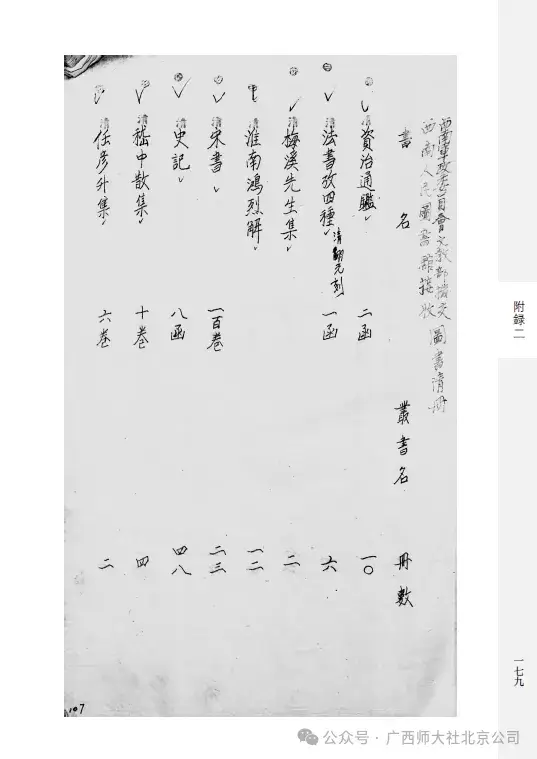 西南軍政委員會文教部撥交
西南人民圖書館接收
圖書清冊
書名
叢書名
冊數
清
資治通鑑
二函
一〇
清
法書攷四種
清翻元刻
一函
六
清
梅溪先生集
二
清
淮南鴻烈解
一二
清
宋書
一百卷
二三
清
史記
八函
四八
清
嵇中散集
十卷
四
清
任彥升集
六卷
二
107
附録二
一七九
公众号·广西师大社北京公司